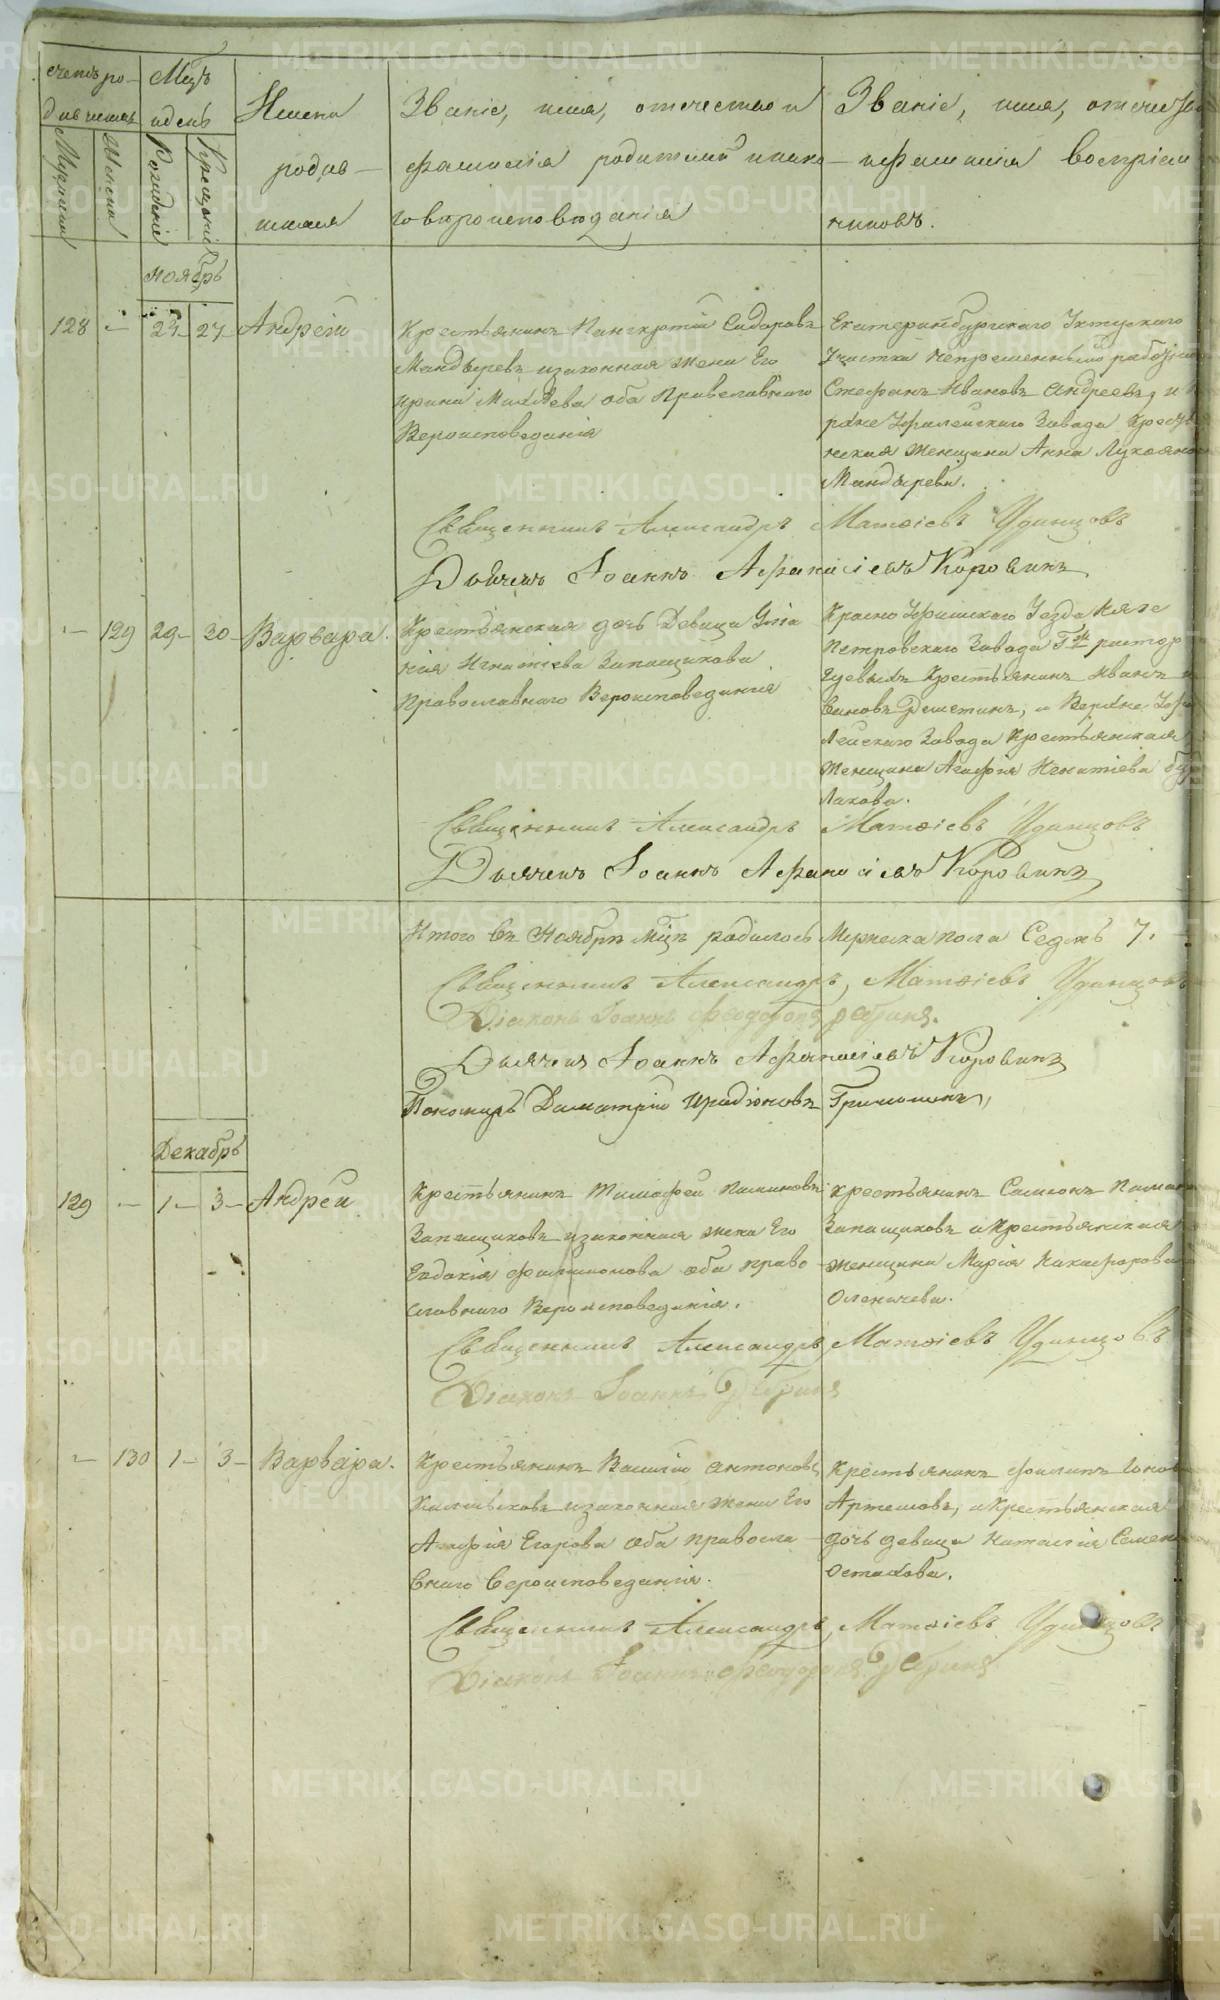 METRIKI.GASO-URAL.RU
счетъ ро-
дившихся
Мужеска
Женска
Мцъ
и день
Рожденiе
Крещенiе
Имена
родив-
шихся
Званiе, имя, отечество и
фамилiя родителей и како-
го вѣроисповѣданiя
Званiе, имя, отечество
и фамилiя воспрiем
никовъ.
Ноябрь
128 — 27 Андрей
Крестьянинъ Панкратiй Сидоровъ
Мандыревъ и законная жена Его
Ирина оба Православнаго
Вероисповеданiя
Екатеринбургскаго Уктусскаго
Участка Непременный работникъ
Стефанъ Ивановъ Андреевъ, и
Уфалейскаго Завода Крестьян
ская женщина Анна
Мандырева.
Священникъ Александръ Матѳiевъ Удинцовъ
Дьячекъ Iоаннъ Афанасiевъ Коровинъ
— 129 29 — 30 — Варвара.
Крестьянская дочь Девица
Игнатiева Запащикова
Православнаго Вероисповеданiя
Красно Уфимскаго Уезда Нязе
Петровскаго Завода Гг.
Крестьянинъ Иванъ
и Верхне Уфа
лейскаго Завода Крестьянская
женщина Агафiя Игнатiева Бур
лакова.
Священникъ Александръ Матѳiевъ Удинцовъ
Дьячекъ Iоаннъ Афанасiевъ Коровинъ
Итого въ Ноябрѣ мцѣ родилось Мужеска пола Седмь 7.
Священникъ Александръ Матѳiевъ Удинцовъ
Дiаконъ Iоаннъ
Дьячекъ Iоаннъ Афанасiевъ Коровинъ
Пономарь Димитрiй Иродiоновъ
Декабрь
129 — 1 — 3 — Андрей
Крестьянинъ Тимофей Пиминовъ
Запащиковъ и законная жена Его
Евдокiя Филимонова оба право
славнаго Вероисповеданiя.
Крестьянинъ Самсонъ
Запащиковъ и Крестьянская
женщина Марiя Никифорова
Оленичева.
Священникъ Александръ Матѳiевъ Удинцовъ
Дiаконъ Iоаннъ
— 130 1 — 3 — Варвара.
Крестьянинъ Василiй Антоновъ
и законная жена Его
Агафiя Егорова оба правосла
внаго вероисповеданiя.
Крестьянинъ Филипъ
Артемовъ, и Крестьянская
дочь девица Наталiя Семен
Остахова.
Священникъ Александръ Матѳiевъ Удинцовъ
Дiаконъ Iоаннъ